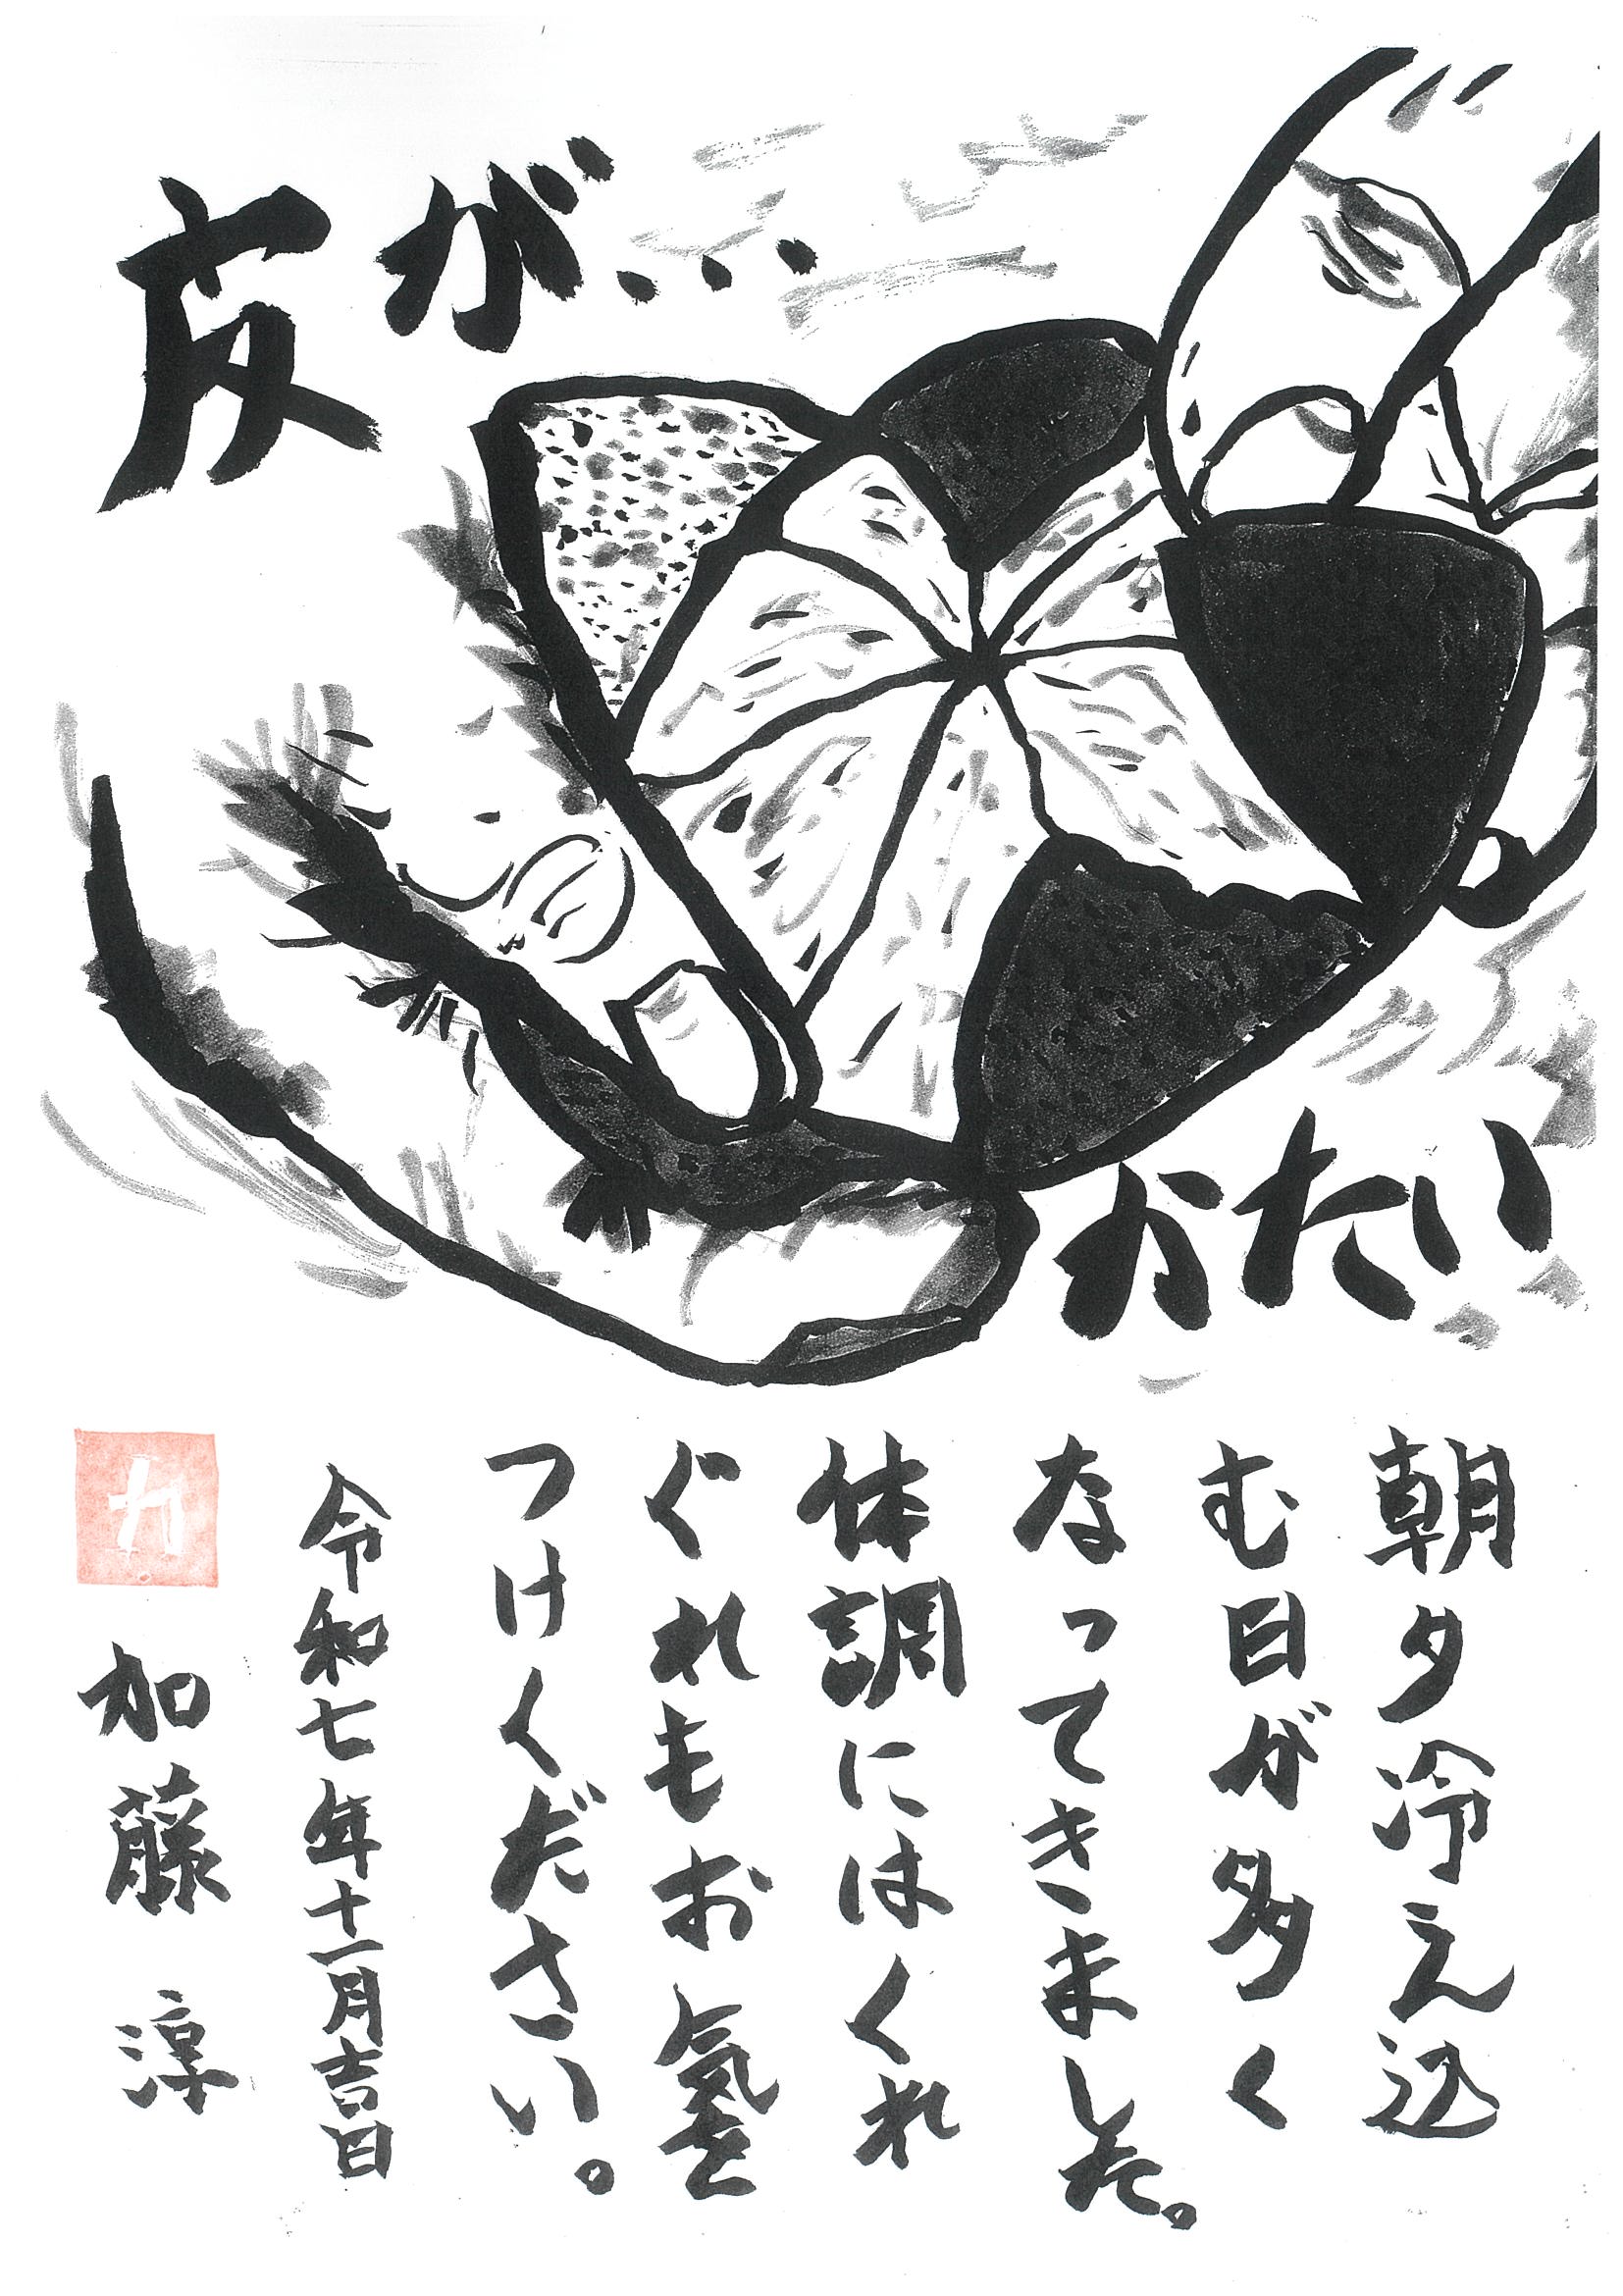 皮が…
かたい
朝夕冷え込
む日が多く
なってきました。
体調にはくれ
ぐれもお気を
つけください。
令和七年十一月吉日
カ
加藤 淳